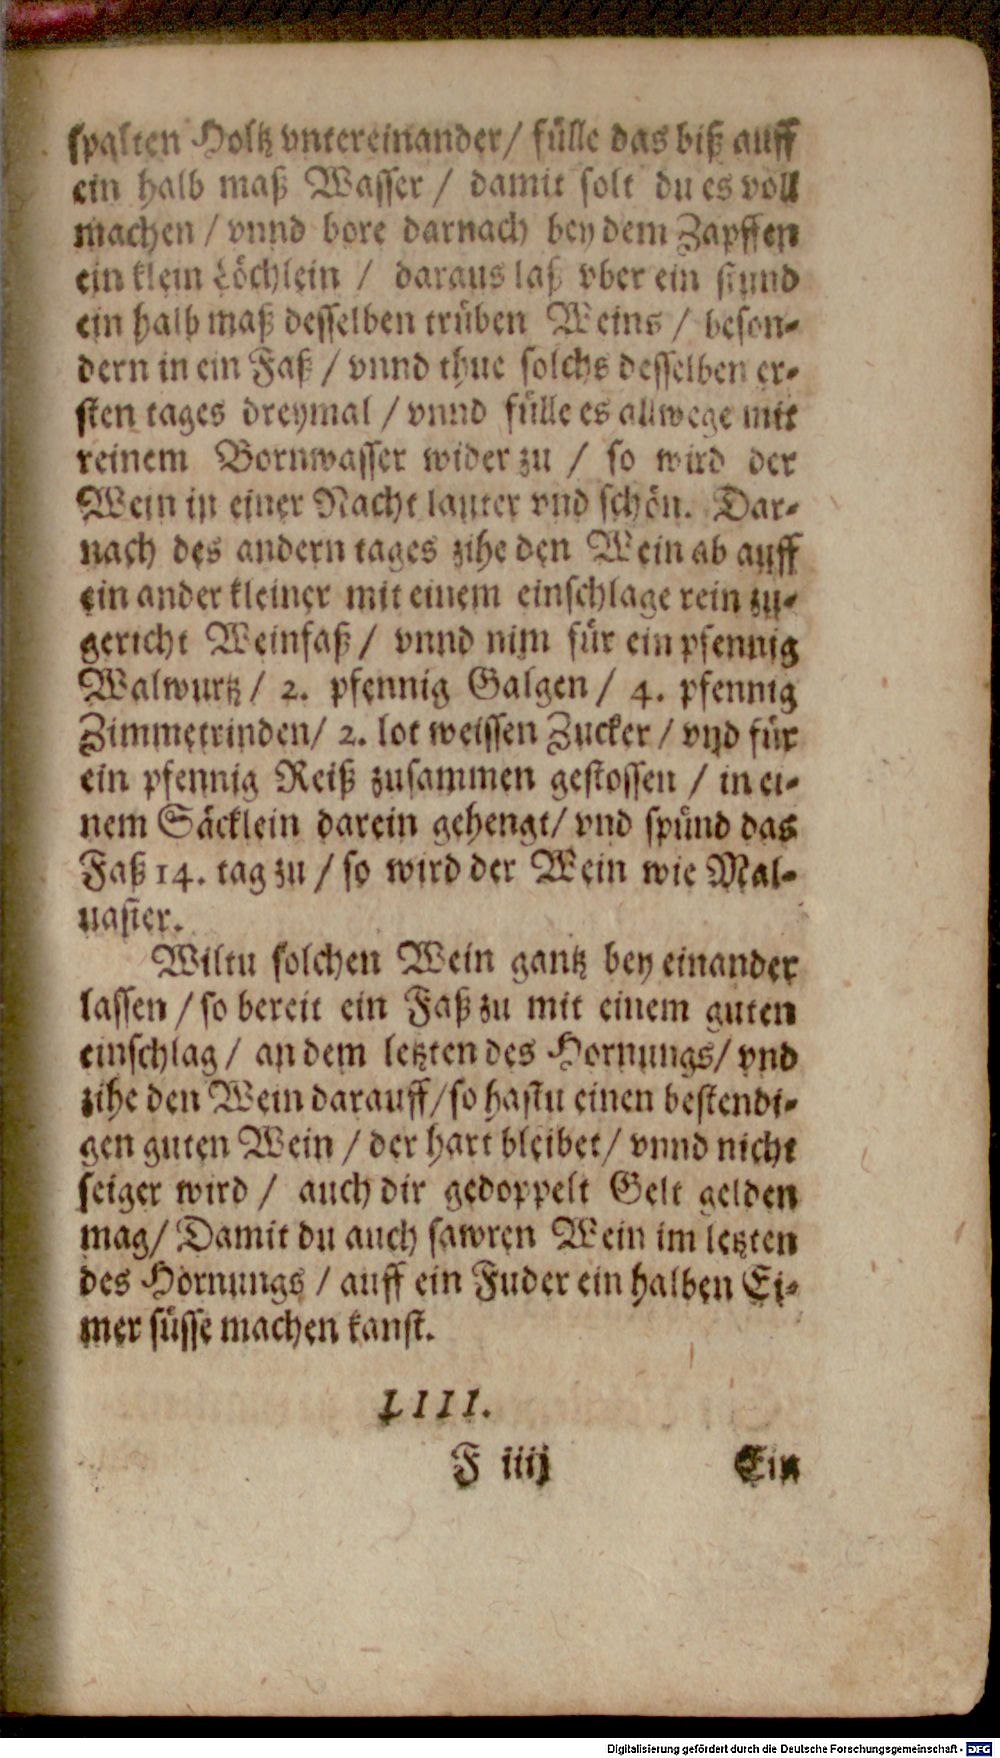 spalten Holtz vntereinander/ fülle das biß auff
ein halb maß Wasser / damit solt du es voll
machen / vnnd bore darnach bey dem Zapffen
ein klein Löchlein / daraus laß vber ein stund
ein halb maß desselben trüben Weins / beson-
dern in ein Faß / vnnd thue solchs desselben er-
sten tages dreymal / vnnd fülle es allwege mit
reinem Bornwasser wider zu / so wird der
Wein in einer Nacht lauter vnd schön. Dar-
nach des andern tages zihe den Wein ab auff
ein ander kleiner mit einem einschlage rein zu-
gericht Weinfaß / vnnd nim für ein pfennig
Walwurtz / 2. pfennig Galgen / 4. pfennig
Zimmetrinden/ 2. lot weissen Zucker / vnd für
ein pfennig Reiß zusammen gestossen / in ei-
nem Säcklein darein gehengt/ vnd spünd das
Faß 14. tag zu / so wird der Wein wie Mal-
uasier.
Wiltu solchen Wein gantz bey einander
lassen / so bereit ein Faß zu mit einem guten
einschlag / an dem letzten des Hornungs/ vnd
zihe den Wein darauff/ so hastu einen bestendi-
gen guten Wein / der hart bleibet/ vnnd nicht
seiger wird / auch dir gedoppelt Gelt gelden
mag/ Damit du auch sawren Wein im letzten
des Hornungs / auff ein Fuder ein halben Ei-
mer süsse machen kanst.
LIIII.
F iiij Ein
Digitalisierung gefördert durch die Deutsche Forschungsgemeinschaft - DFG